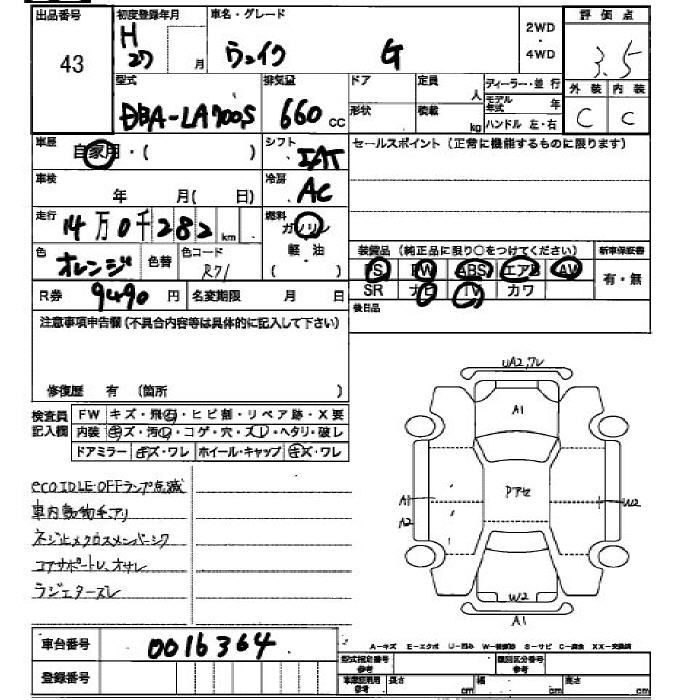 出品番号
43
初度登録年月
H
27 月
車名・グレード
ウェイク G
2WD
・
4WD
評価点
3.5
外装 内装
C C
型式
DBA-LA700S
排気量
660 cc
ドア
定員 人
形状
積載 kg
ディーラー・並行
モデル年式 年
ハンドル 左・右
車歴
自家用・( )
シフト
IAT
セールスポイント (正常に機能するものに限ります)
車検
年 月( 日)
冷房
AC
走行
14万0千282km
燃料
ガソリン
軽・油
色
オレンジ
色替
色コード
R71
装備品 (純正品に限り○をつけてください)
新車保証書
PS PW ABS エアB AW
有・無
SR ナビ TV カワ
R券 9490 円
名変期限 月 日
後日品
注意事項申告欄(不具合内容等は具体的に記入して下さい)
修復歴 有 (箇所 )
検査員
記入欄
FW キズ・飛石・ヒビ割・リペア跡・X要
内装 キズ・汚レ・コゲ・穴・スレ・ヘタリ・破レ
ドアミラー キズ・ワレ ホイール・キャップ キズ・ワレ
eco IDLE・OFFランプ点滅
車内動物毛アリ
ネジ止メクロスメンバーシワ
コアサポートレ、オサレ
ラジエターズレ
UA2,ワレ
A1
Pアセ
A1
A2
W2
W2
A1
車台番号
0016364
登録番号
A－キズ E－エクボ U－凹み W－補修跡 S－サビ C－腐食 XX－交換済
型式指定番号
参考
類別区分番号
参考
車庫証明用
参考
長さ cm
幅 cm
高さ cm